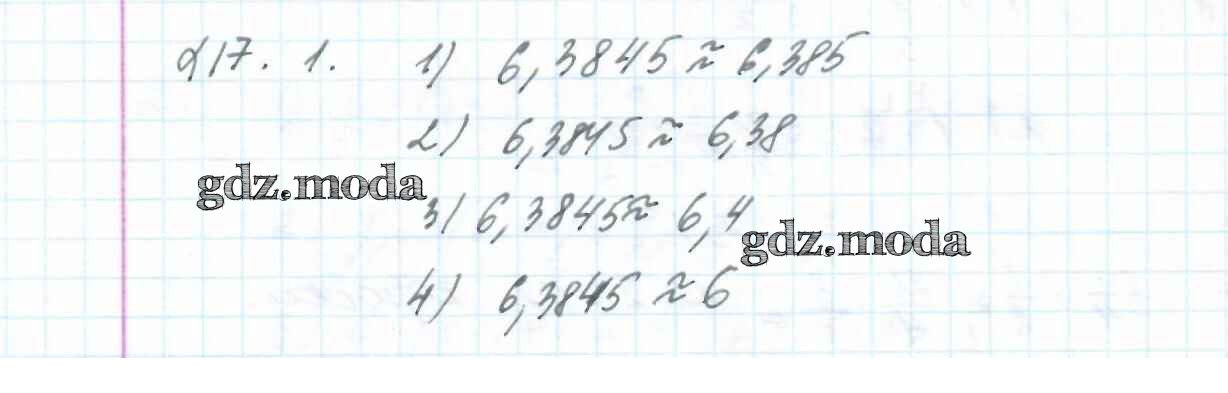 Д17. 1. 1) 6,3845 ≈ 6,385
2) 6,3845 ≈ 6,38
gdz.moda
3) 6,3845 ≈ 6,4
gdz.moda
4) 6,3845 ≈ 6